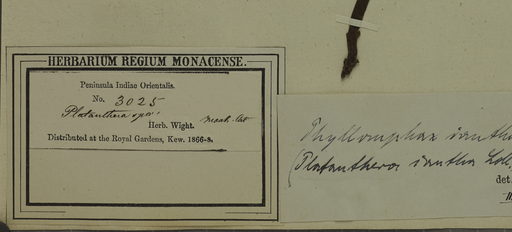 HERBARIUM REGIUM MONACENSE.
Peninsula Indiae Orientalis.
No. 3025
Platanthera
Herb. Wight.
Distributed at the Royal Gardens, Kew. 1866-8.
Phyllomphax iantha
(Platanthera iantha
det.